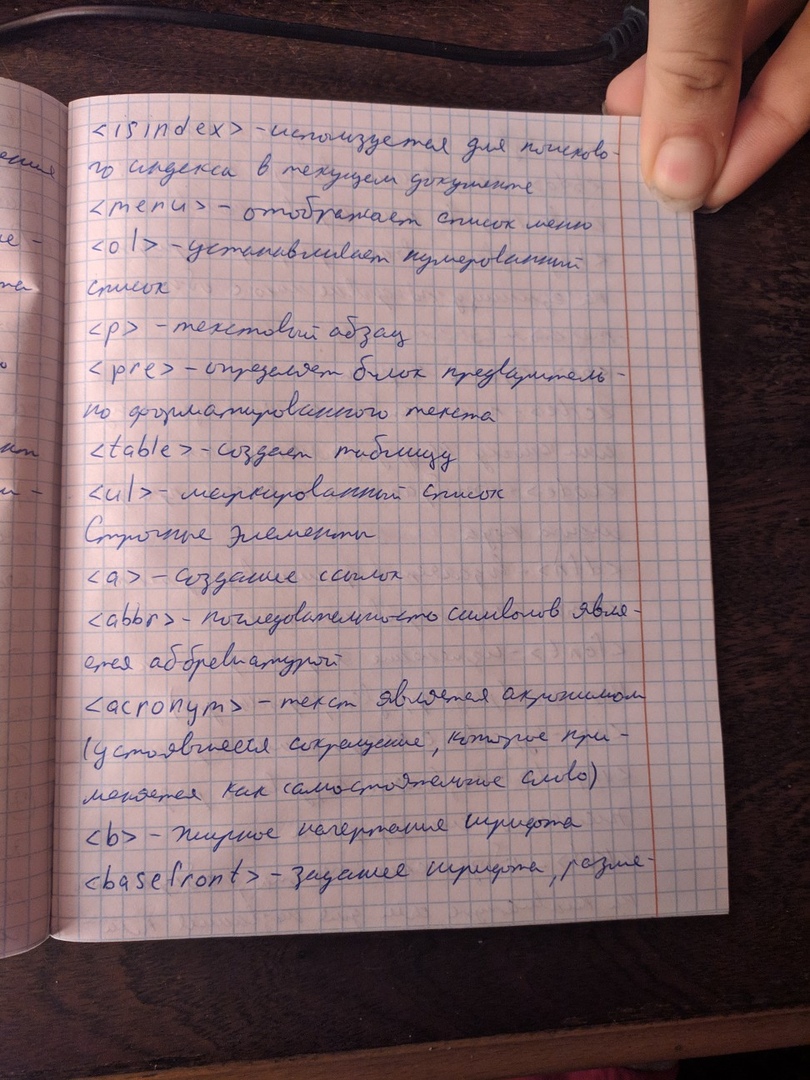 <isindex> - используется для поисково-
го индекса в текущем документе
<menu> - отображает список меню
<ol> - устанавливает нумерованный
список
<p> - текстовый абзац
<pre> - определяет блок предваритель-
но форматированного текста
<table> - создает таблицу
<ul> - маркированный список
Строчные элементы
<a> - создание ссылок
<abbr> - последовательность символов явля-
ется аббревиатурой
<acronym> - текст является акронимом
(устоявшееся сокращение, которое при-
меняется как самостоятельное слово)
<b> - жирное начертание шрифта
<basefront> - задание шрифта, разме-